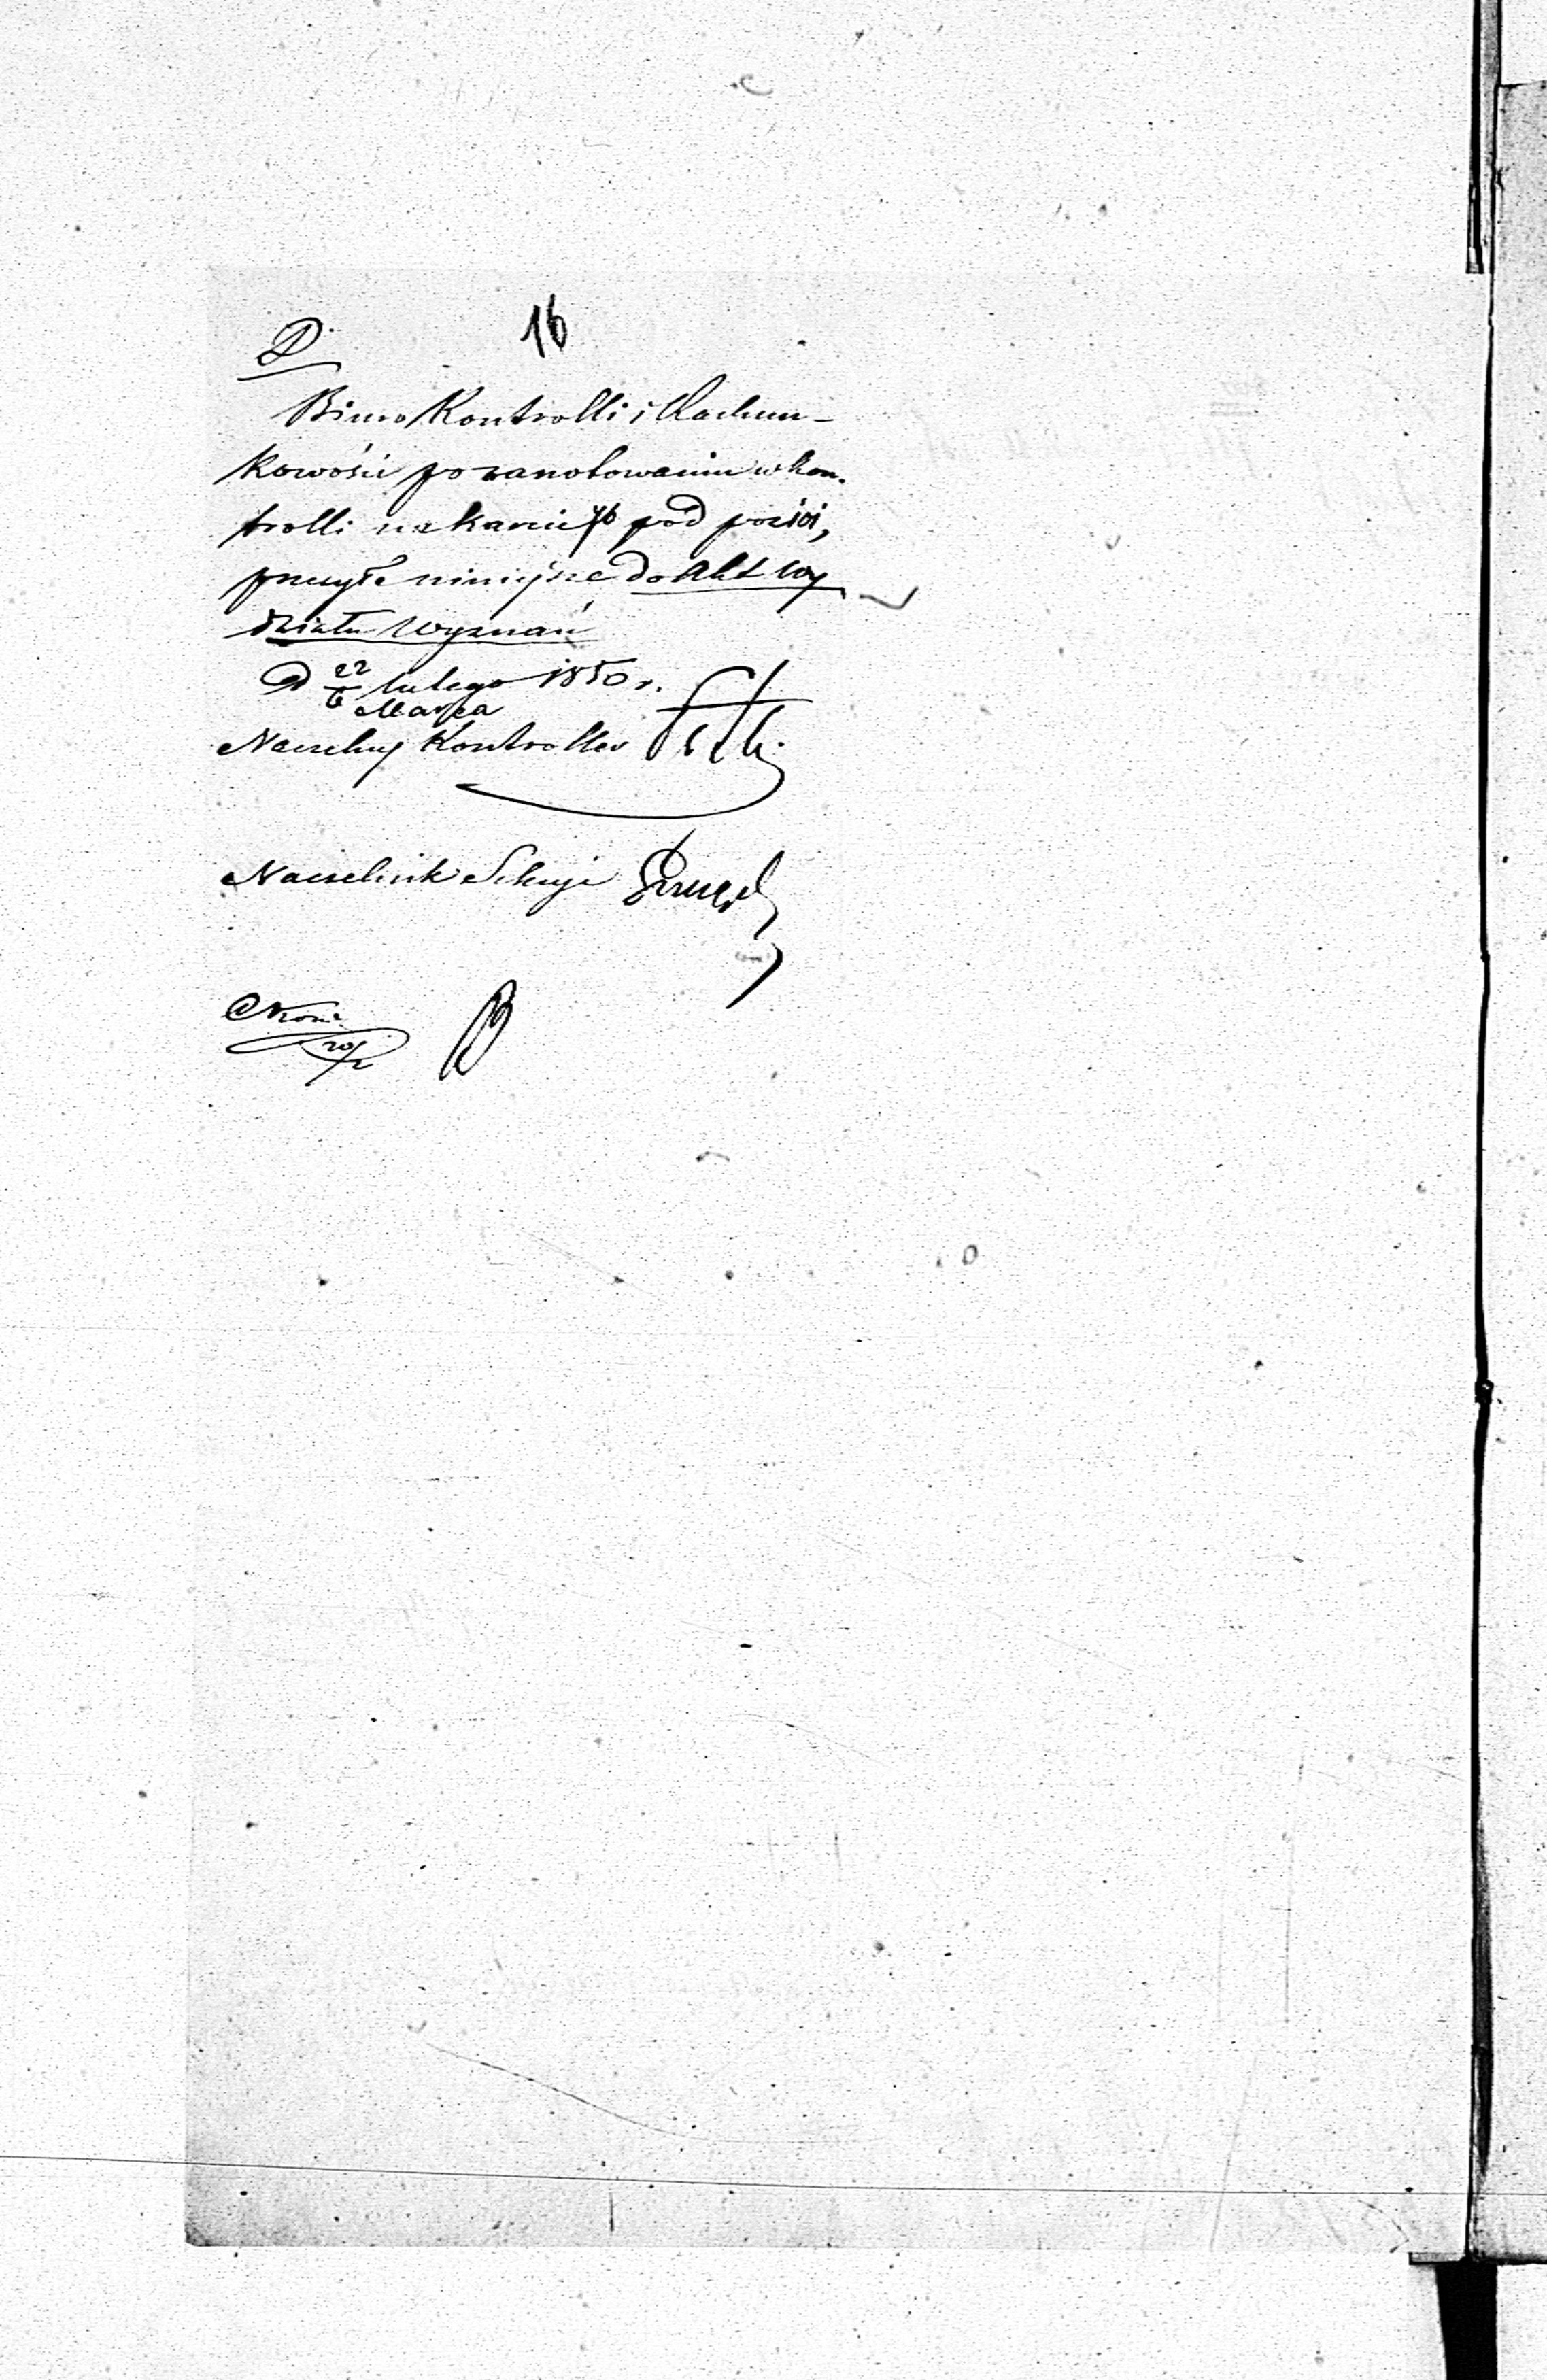 16
Biuro Kontrolli i Rachun-
kowości po zanotowaniu w kon-
trolli na karcie 46 pod poz:
przesyła niniejsze do Akt Wy
działu Wyznań
D 22 Lutego 1850 r.
6 Marca
Naczelny Kontroller
Naczelnik Sekcyi